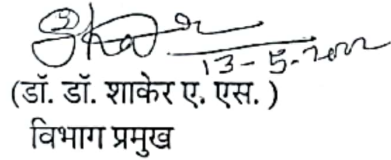 13-5-2022
(डॉ. डॉ. शाकेर ए. एस. )
विभाग प्रमुख